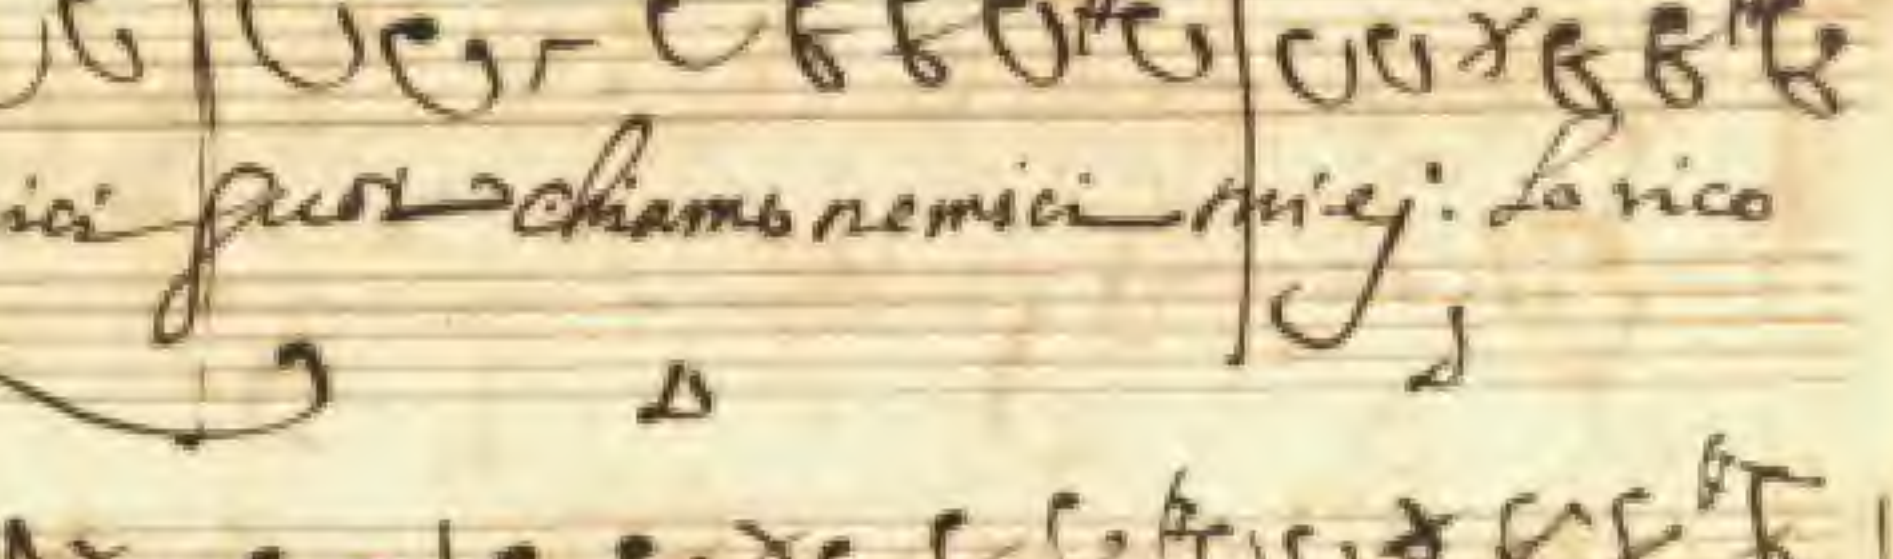 ici fuor chiamo nemici miej: La rico